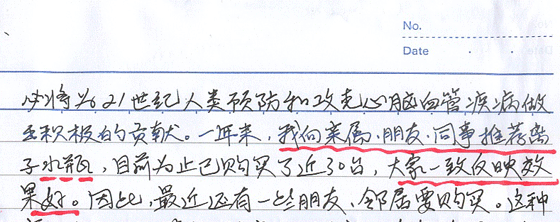 No.
Date
必将为21世纪人类预防和攻克心脑血管疾病做
出积极的贡献。一年来，我向亲属、朋友、同事推荐离
子水瓶，目前为止已购买了近30台，大家一致反映效
果好。因此，最近还有一些朋友，邻居要购买。这种